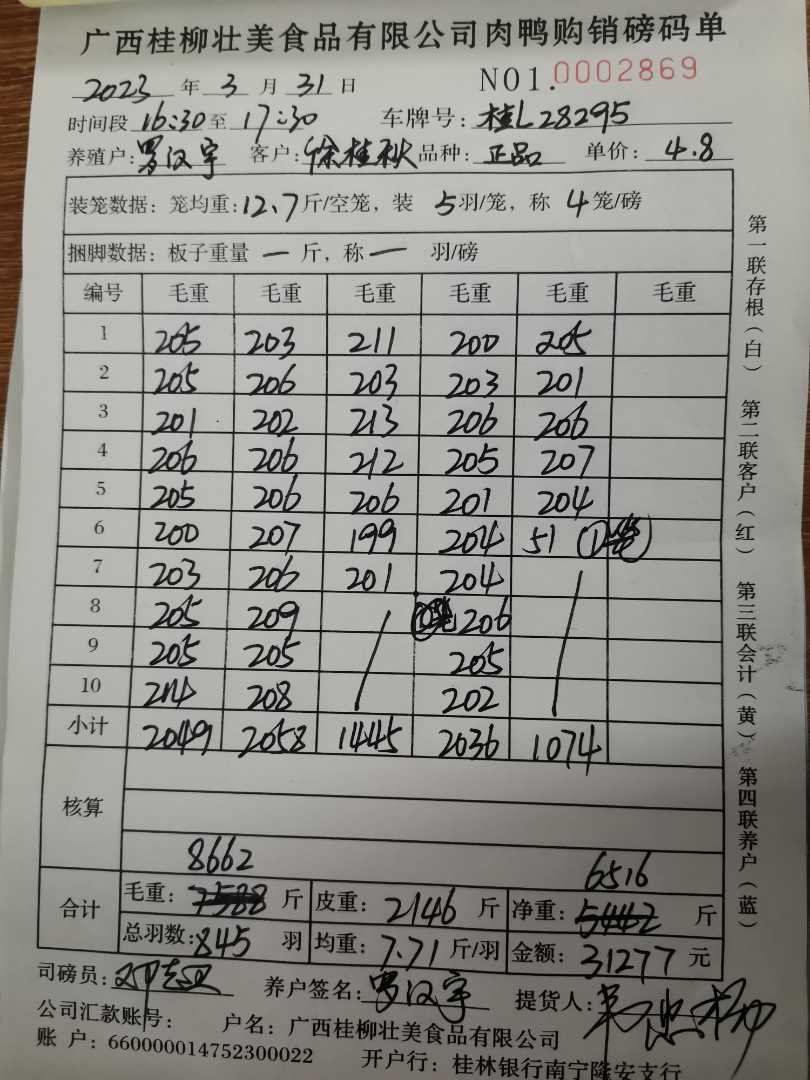 广西桂柳壮美食品有限公司肉鸭购销磅码单
2023 年 3 月 31 日 NO1.0002869
时间段 16:30 至 17:30 车牌号: 桂L28295
养殖户: 罗汉宇 客户: 徐桂秋 品种: 正品 单价: 4.8
装笼数据: 笼均重: 12.7 斤/空笼, 装 5 羽/笼, 称 4 笼/磅
捆脚数据: 板子重量 一 斤, 称 一 羽/磅
编号 毛重 毛重 毛重 毛重 毛重 毛重
1 205 203 211 200 205
2 205 206 203 203 201
3 201 202 213 206 206
4 206 206 212 205 207
5 205 206 206 201 204
6 200 207 199 204 51
7 203 206 201 204
8 205 209 206
9 205 205 205
10 214 208 202
小计 2049 2058 1445 2036 1074
核算
8662 6516
合计 毛重: 7588 斤 皮重: 2146 斤 净重: 5442 斤
总羽数: 845 羽 均重: 7.71 斤/羽 金额: 31277 元
司磅员: 养户签名: 罗汉宇 提货人:
公司汇款账号: 户名: 广西桂柳壮美食品有限公司
账 户: 660000014752300022 开户行: 桂林银行南宁隆安支行
第一联存根(白) 第二联客户(红) 第三联会计(黄) 第四联养户(蓝)